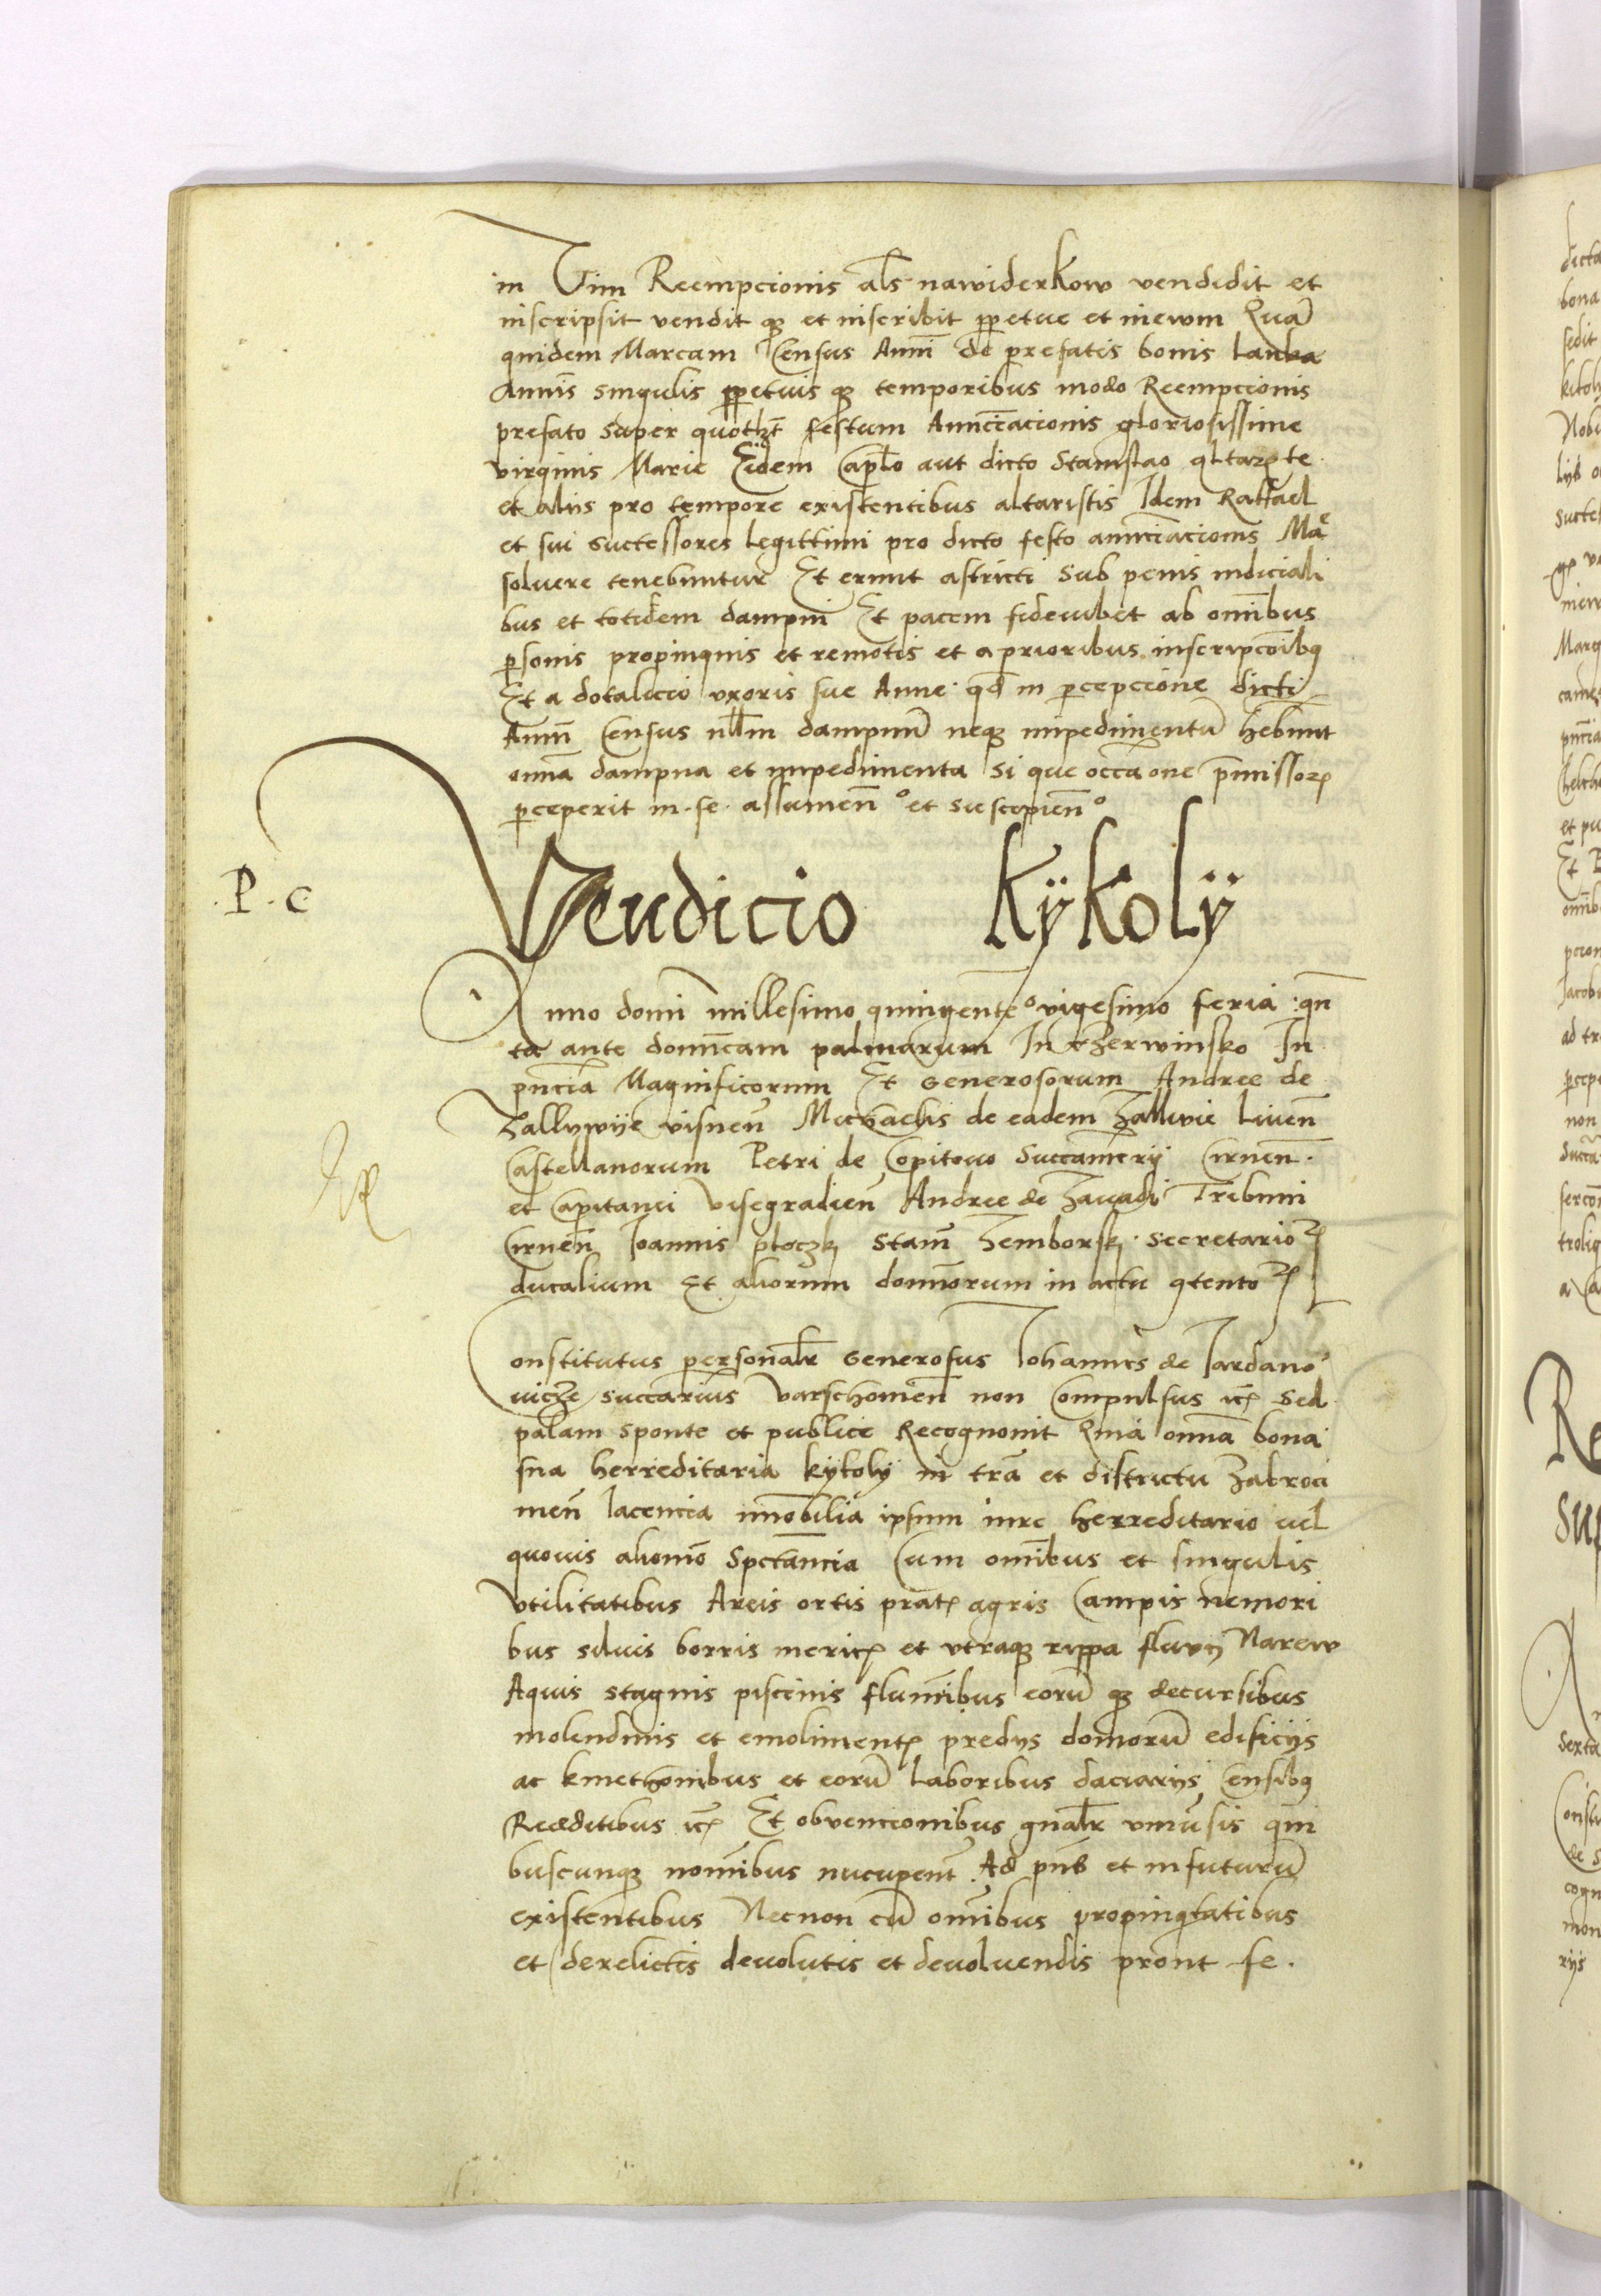 in Vim Reempcionis als nawiderkow vendidit et
inscripsit vendit qz et inscribit ppetue et inewm Quā
quidem Marcam Census Annī de prefatis bonis Lanka
Annis singulis ppetuis qz temporibus modo Reempcionis
prefato super quotlzt festum Annūcciacionis gloriosissime
virginis Marie Eidem Caplo aut dicto Stanislao altarꝫte
et aliis pro tempore existentibus altaristis Idem Raffael
et sui successores legittimi pro dicto festo annūcciacionis Mae
soluere tenebuntur Et erunt astricti sub penis iudiciali
bus et totidem dampni Et pacem fideiubet ab omībus
psonis propinquis et remotis et a prioribus inscripcoībq
Et a dotalicio vxoris sue Anne qd in pcepcione dicti
Annī Census nllm dampnū neqz impedimentū hebunt
omīa dampna et impedimenta si que occaone pmissorꝫ
pceperit in se assumen̄ et suscepien̄
P. c
Vendicio Kÿkolÿ
Anno domī millesimo quingente° vigesimo feria qn̄
ta ante domīcam palmarum In Czerwinsko In
pn̄cia Magnificorum Et Generosorum Andree de
Zallywÿe visnen̄ Michaelis de eadem Zallivie Liuen̄
Castellanorum Petri de Copitouo Succamerÿ Cirnen̄
et Capitanei visegradien̄ Andree de Zauadi Tribuni
Cirnen̄ Ioannis ploczkꝫ Stanī Zemborskꝫ secretarioꝝ
ducalium Et aliorum dominorum in actu 9tentoꝝ
Constitutus personalr Generosus Iohannes de Iardano
uicze succarius varschouien̄ non Compulsus icꝫ sed
palam sponte et publice Recognouit Quia omīa bona
sua herreditaria kÿkolÿ in tr̄a et districtu Zabroci
men̄ Iacencia imobilia ipsum iure herreditario uel
quouis aliomō spectancia Cum omībus et singulis
vtilitatibus Areis ortis pratꝫ agris Campis nemori
bus siluis borris mericꝫ et vtraqz rippa fluvÿ Narew
Aquis stagnis piscinis fluminibus eorū qz decursibus
molendinis et emolimentꝫ predÿs domorū edificÿs
ac kmethonibus et eorū laboribus daciarÿs Censibq
Redditibus icꝫ Et obvencionibus gnalr vniūsis qui
buscunqz nomībus nucupent Ad pn̄s et in futurū
existentibus Necnon cū omībus propinqtatibus
et derelictis deuolutis et deuoluendis prout se